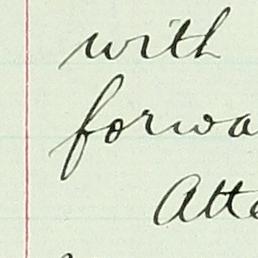 with
forwa
Atte